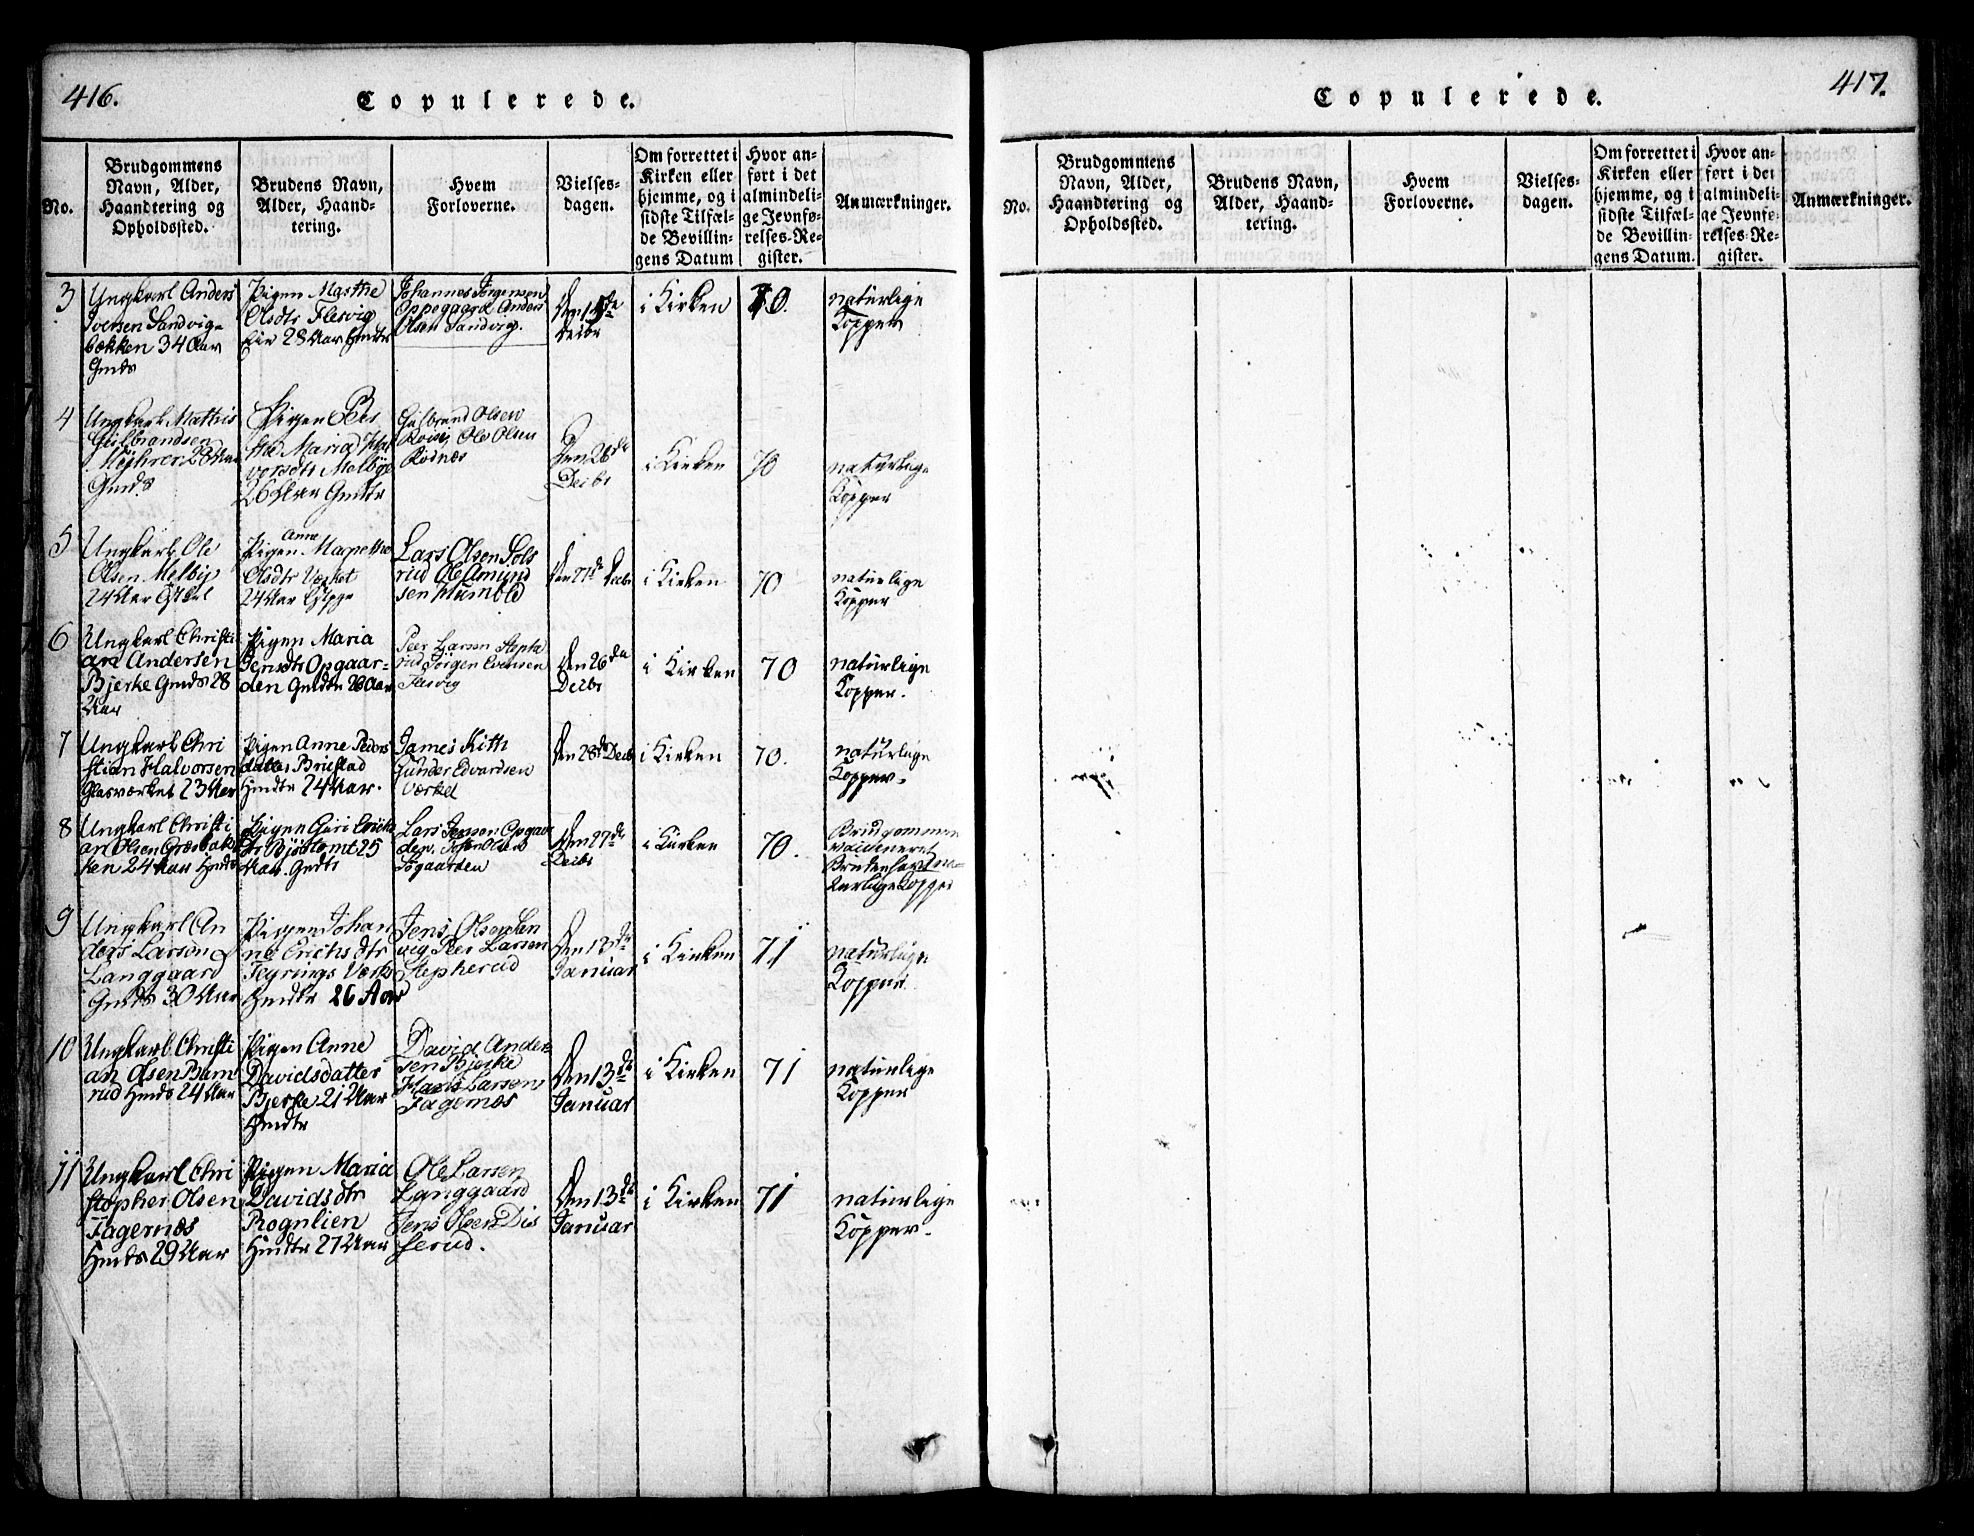 416.
Copulerede.
No.
Brudgommens
Navn, Alder,
Haandtering og
Opholdssted.
Brudens Navn,
Alder, Haand-
tering.
Hvem
Forloverne.
Vielses-
dagen.
Om forrettet i
Kirken eller
hjemme, og i
sidste Tilfæl-
de Bevillin-
gens Datum
Hvor an-
ført i det
almindeli-
ge Jevnfø-
relses-Re-
gister.
Anmærkninger.
3
Ungkarl Anders
Iversen Sandvig-
bækken 34 Aar
Gmds
Pigen Marthe
Olsdtr Flesvig
Eie 28 Aar Gmdtr
Johannes Jørgensen
Oppegaard Anders
Olsen Sandvig.
Den
Decbr
i Kirken
70.
naturlige
Kopper
4
Ungkarl Mathis
Gulbrandsen
28 Aar
Gmds.
Pigen Ber
the Maria Hal
vorsdtr Melbye
26 Aar Gmdtr
Gulbrand Olsen
Ole Olsen
Kodnæs
Den 26de
Decbr
i Kirken
70
naturlige
Kopper
5
Ungkarl Ole
Olsen Melbye
24 Aar
Pigen Anne Marethe
Olsdtr Værket
24 Aar
Lars Olsen Sols
rud Ole Amund
sen Humbled
Den 27de Decbr
i Kirken
70
naturlige
Kopper
6
Ungkarl Christi
an Andersen
Bjerke Gmds 28
Aar
Pigen Maria
Jensdtr Opgaar-
den Gmdtr 28 Aar
Peer Larsen Stephe
rud Jørgen Evensen
Flesvig
Den 26de
Decbr
i Kirken
70
naturlige
Kopper.
7
Ungkarl Chri
stian Halvorsen
Glasværket 23 Aar
Pigen Anne Peders
datter Brustad
Hmdtr 24 Aar.
James Kith
Gunder Edvardsen
Værket
Den 28de Decbr
i Kirken
70.
naturlige
Kopper.
8
Ungkarl Christi
an Olsen Græsbak
ken 24 Aar Hmds
Pigen Guri Erichs
dtr Bjørtomt 25
Aar. Gmdtr
Lars Jensen Opgaar
den. John Olsen
Søgaarden
Den 27de
Decbr
i Kirken
70.
Brudgommen
vaccineret
Bruden havt na-
turlige Kopper
9
Ungkarl An
ders Larsen
Langgaard
Gmds 30 Aar
Pigen Johan
ne Erichsdtr
Teyrings Værk
Hmdtr 26 Aar
Jens Olsen San
vig Peer Larsen
Stepherud
Den 13de
Januar
i Kirken
71
naturlige
Kopper
10
Ungkarl Christi
an Olsen Ram
rud Hmds 24 Aar
Pigen Anne
Davidsdatter
Bjerke 21 Aar
Hmdtr
David Ander
sen Bjerke
Hans Larsen
Fagernæs
Den 13de
Januar
i Kirken
71
naturlige
Kopper
11
Ungkarl Chri
stopher Olsen
Fagernæs
Hmds 29 Aar
Pigen Maria
Davidsdtr
Rognlien
Hmdtr 27 Aar
Ole Larsen
Langgaard
Jens Olsen Dis
serud.
Den 13de
Januar
i Kirken
71
naturlige
Kopper.
417.
Copulerede.
No.
Brudgommens
Navn, Alder,
Haandtering og
Opholdssted.
Brudens Navn,
Alder, Haand-
tering.
Hvem
Forloverne.
Vielses-
dagen.
Om forrettet i
Kirken eller
hjemme, og i
sidste Tilfæl-
de Bevillin-
gens Datum.
Hvor an-
ført i det
almindeli-
ge Jevnfø-
relses-Re-
gister.
Anmærkninger.